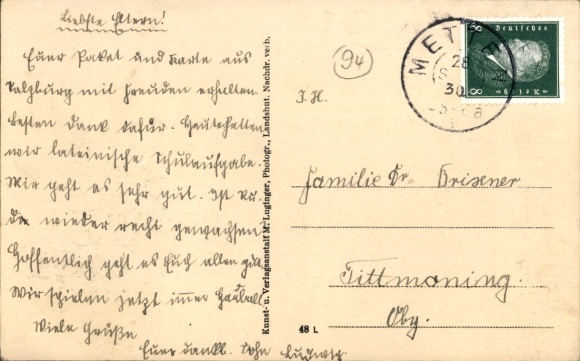 Liebste Eltern!
Euer Paket und Karte aus
Salzburg mit Freuden erhalten.
Besten Dank dafür. Heute hatten
wir lateinische Schulaufgabe.
Mir geht es sehr gut. Ist
wieder recht gewachsen
Hoffentlich geht es Euch allen gut.
Wir spielen jetzt imer
Viele Grüße
Euer dankb. Sohn Ludwig
Kunst- u. Verlagsanstalt M. Luginger, Photogr., Landshut. Nachdr. verb.
48 L
94
METTEN
28
30
Deutsches
Reich
8
8
Familie Dr.
Tittmoning.
Oby.